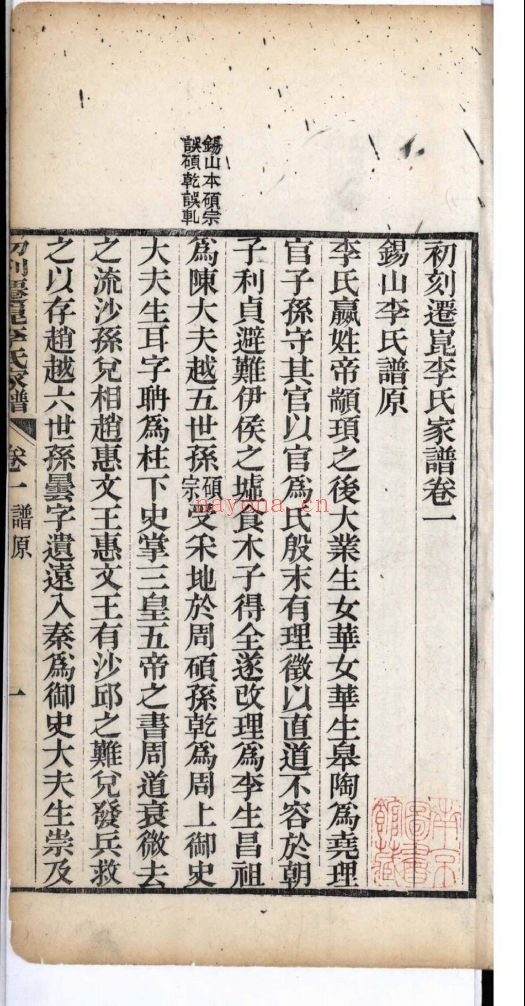 錫山本碩宗
誤碩乾誤軋
初刻遷崑李氏家譜卷一
錫山李氏譜原
李氏嬴姓帝顓頊之後大業生女華女華生皋陶為堯理
官子孫守其官以官為氏殷末有理徵以直道不容於朝
子利貞避難伊侯之墟食木子得全遂改理為李生昌祖
為陳大夫越五世孫碩宗受采地於周碩孫乾為周上御史
大夫生耳字聃為柱下史掌三皇五帝之書周道衰微去
之流沙孫兌相趙惠文王惠文王有沙邱之難兌發兵救
之以存趙越六世孫曇字遺遠入秦為御史大夫生崇及
初刻遷崑李氏家譜 卷一 譜原 一
南京圖書館藏
nayona.cn